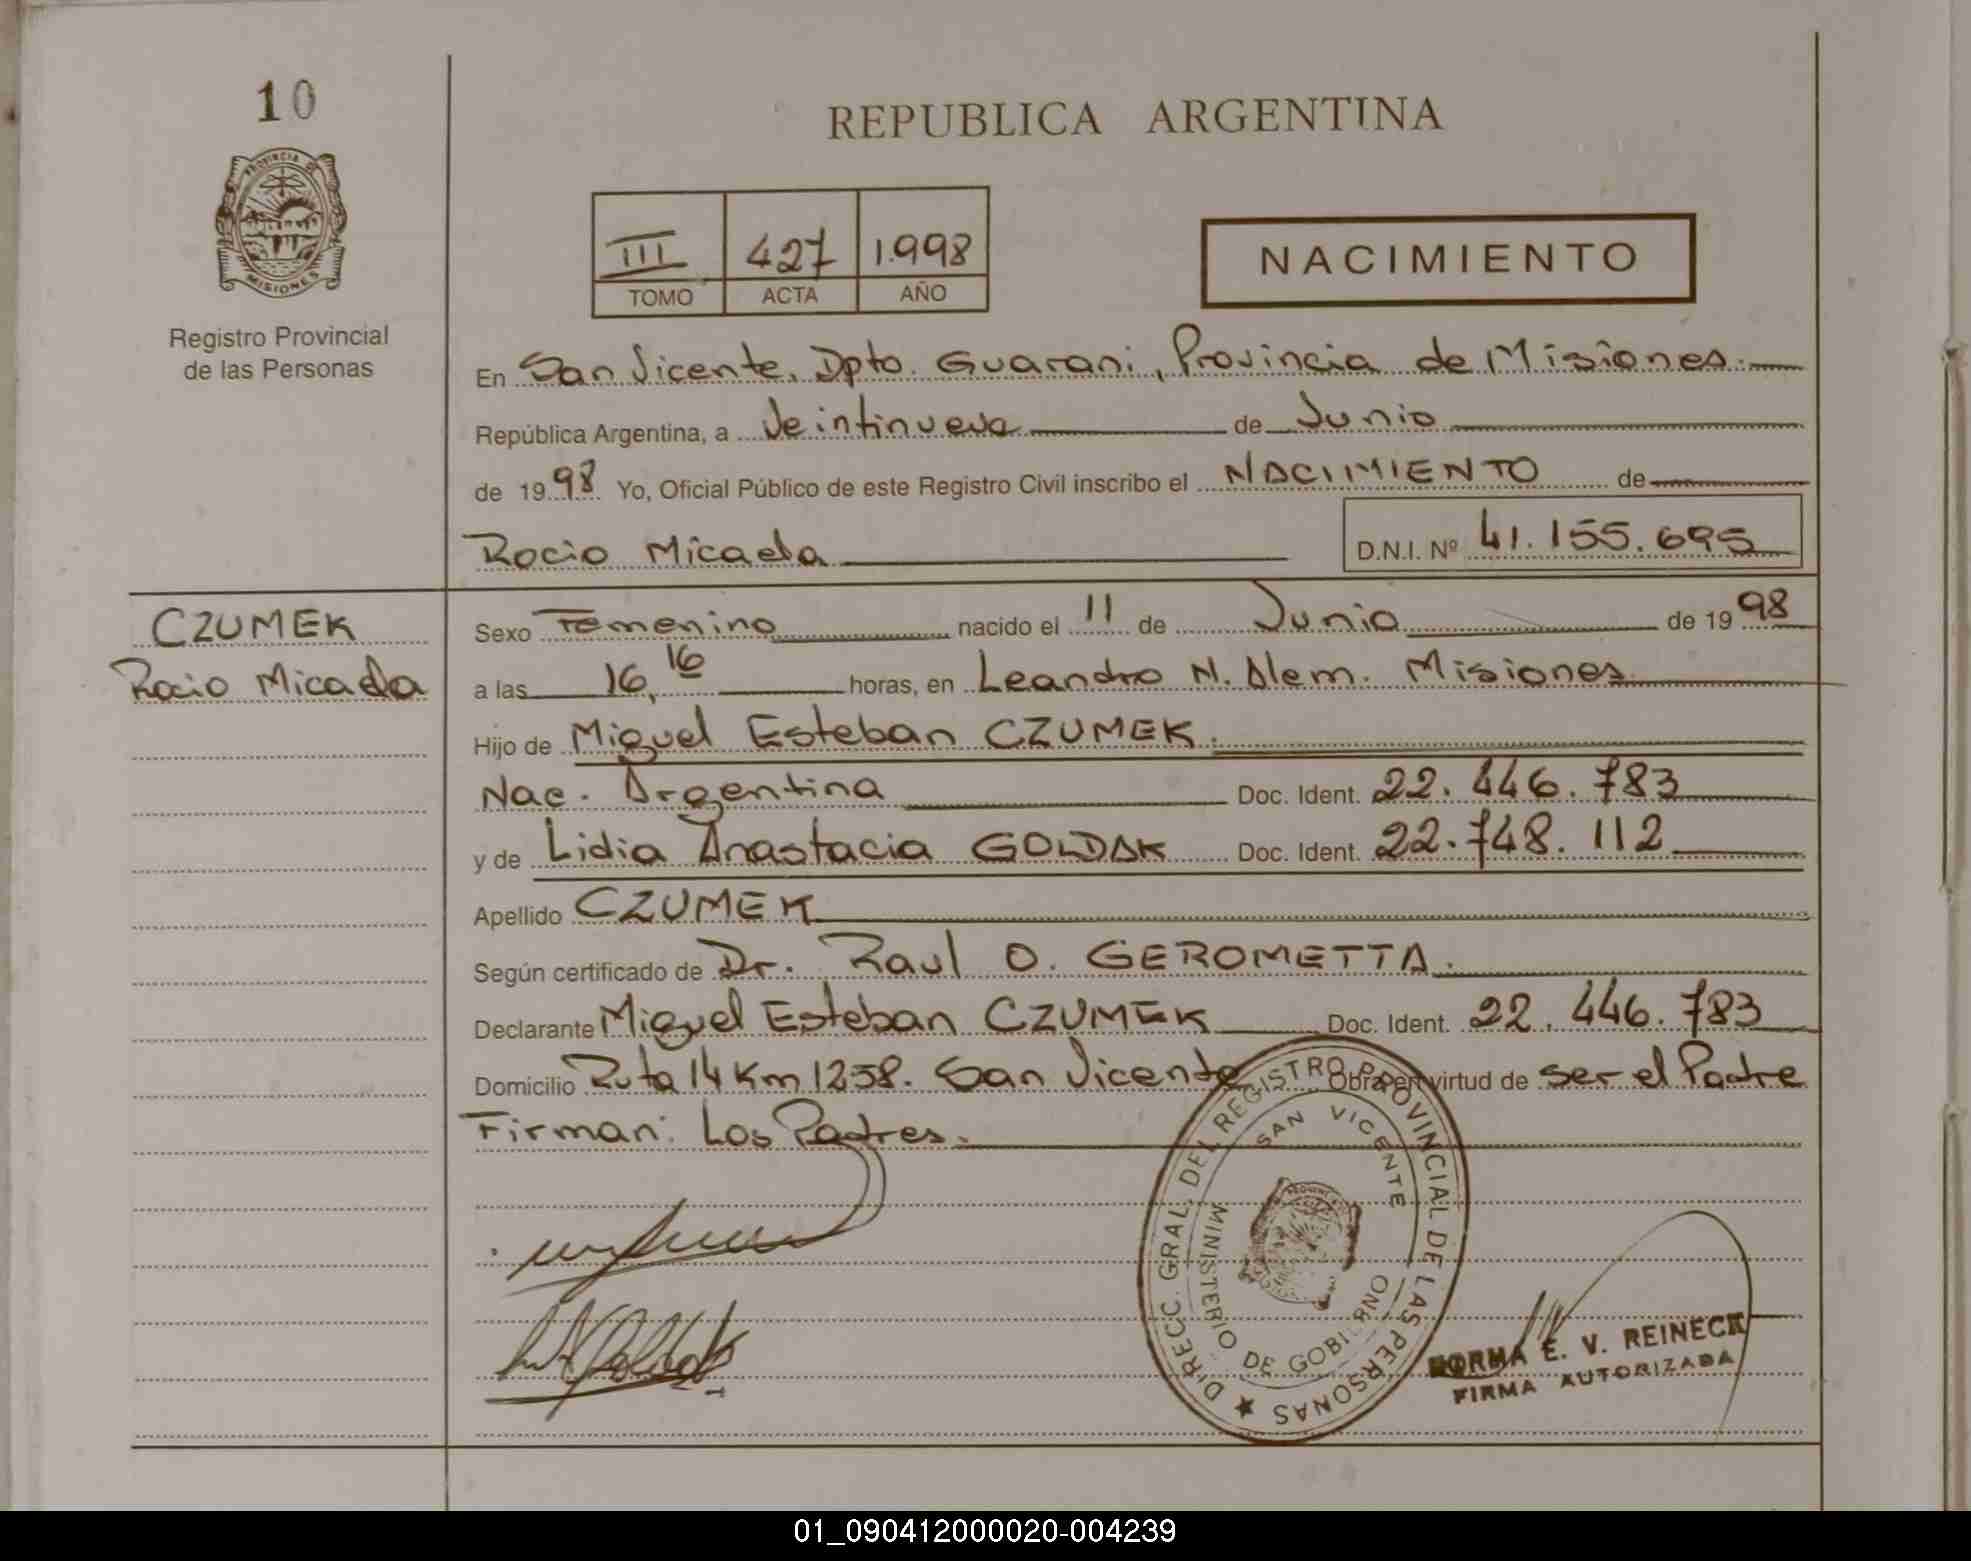 10
REPUBLICA ARGENTINA
PROVINCIA DE
MISIONES
Registro Provincial
de las Personas
III 427 1.998
TOMO ACTA AÑO
NACIMIENTO
En San Vicente, Dpto. Guarani, Provincia de Misiones.
República Argentina, a Veintinueve de Junio
de 1998 Yo, Oficial Público de este Registro Civil inscribo el NACIMIENTO de
Rocio Micaela D.N.I. Nº 41.155.695
CZUMEK
Rocio Micaela
Sexo Femenino nacido el 11 de Junio de 1998
a las 16,16 horas, en Leandro N. Alem. Misiones
Hijo de Miguel Esteban CZUMEK.
Nac. Argentina Doc. Ident. 22.446.783
y de Lidia Anastacia GOLDAK Doc. Ident. 22.748.112
Apellido CZUMEK
Según certificado de Dr. Raul O. GEROMETTA.
Declarante Miguel Esteban CZUMEK Doc. Ident. 22.446.783
Domicilio Ruta 14 Km 1258. San Vicente Obra en virtud de ser el Padre
Firman: Los Padres.
DIRECC. GRAL. DEL REGISTRO PROVINCIAL DE LAS PERSONAS
SAN VICENTE
MINISTERIO DE GOBIERNO
NORMA E. V. REINECK
FIRMA AUTORIZADA
01_090412000020-004239